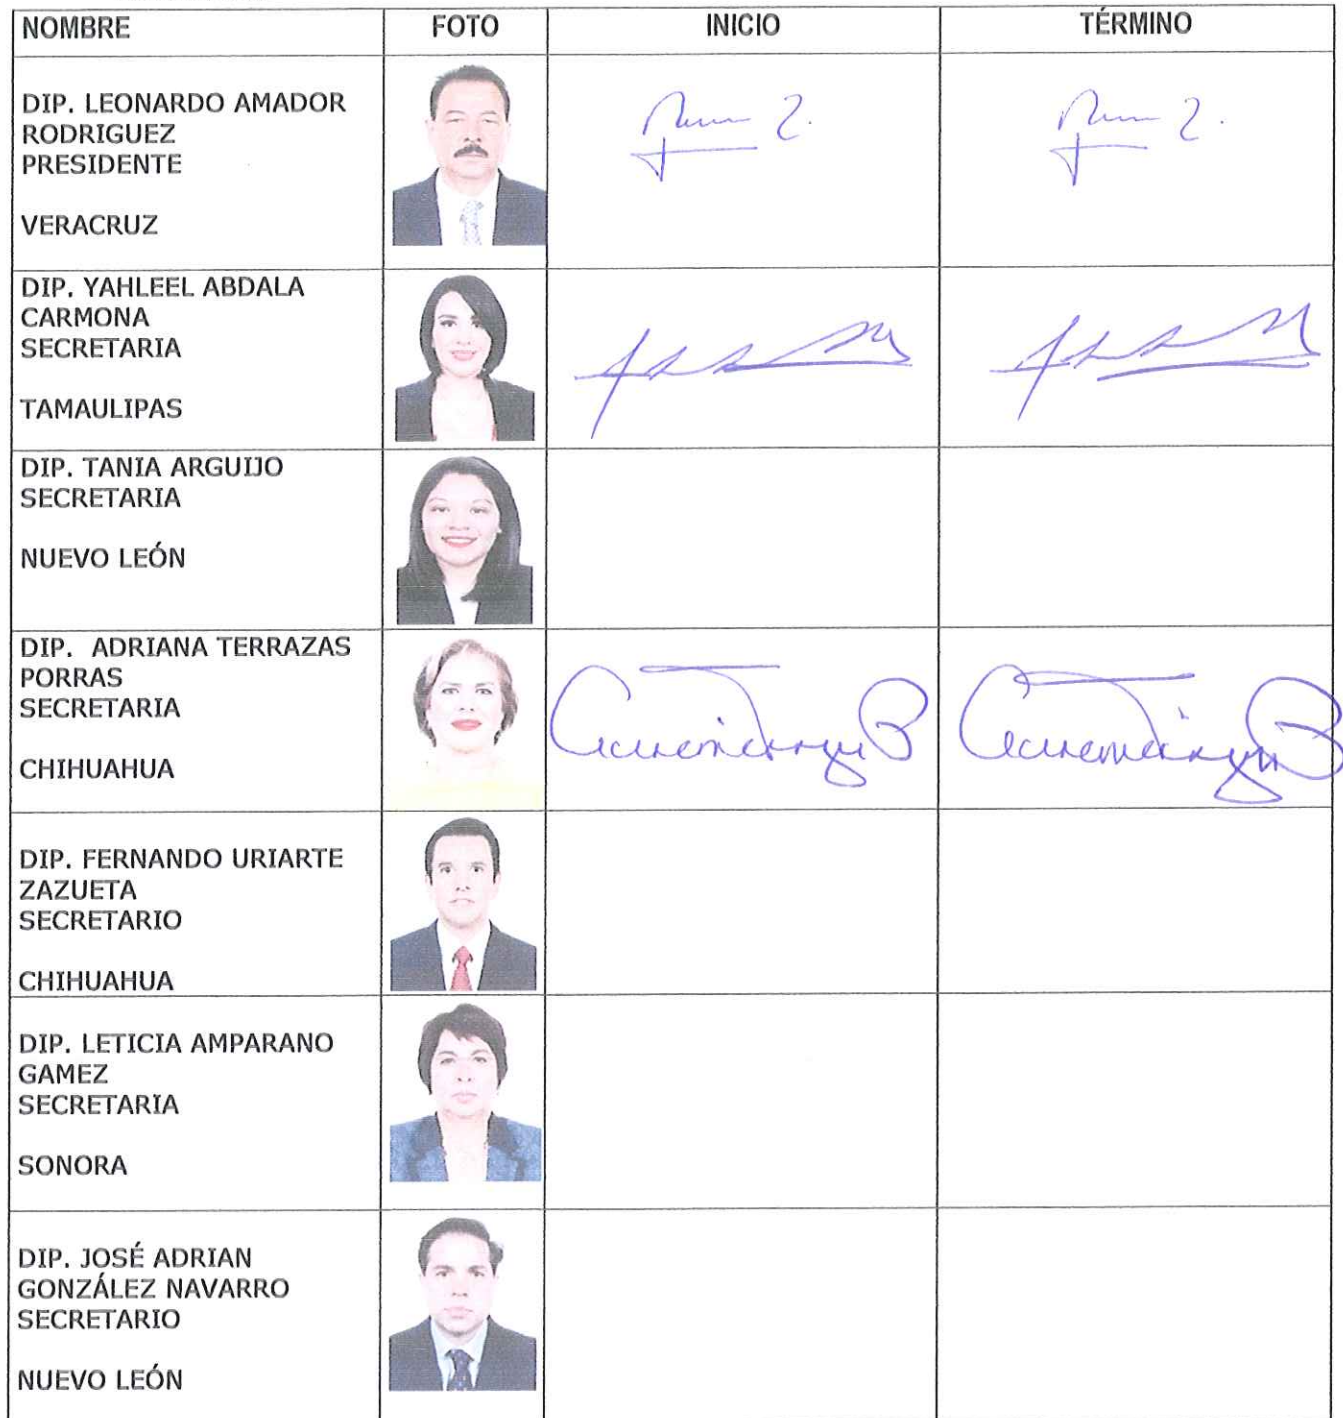 NOMBRE FOTO INICIO TÉRMINO
DIP. LEONARDO AMADOR
RODRIGUEZ
PRESIDENTE
VERACRUZ
DIP. YAHLEEL ABDALA
CARMONA
SECRETARIA
TAMAULIPAS
DIP. TANIA ARGUIJO
SECRETARIA
NUEVO LEÓN
DIP. ADRIANA TERRAZAS
PORRAS
SECRETARIA
CHIHUAHUA
DIP. FERNANDO URIARTE
ZAZUETA
SECRETARIO
CHIHUAHUA
DIP. LETICIA AMPARANO
GAMEZ
SECRETARIA
SONORA
DIP. JOSÉ ADRIAN
GONZÁLEZ NAVARRO
SECRETARIO
NUEVO LEÓN